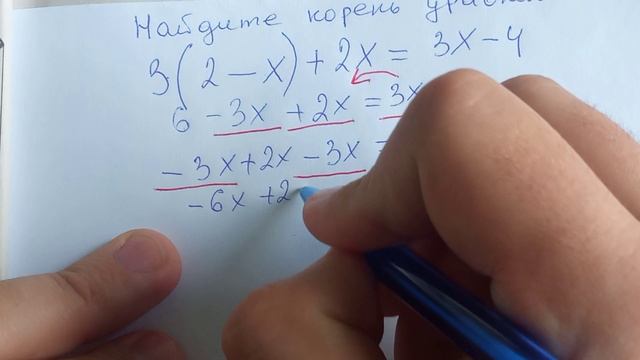 Найдите корень
3(2-x)+2x = 3x-4
6 -3x +2x = 3x
-3x+2x -3x =
-6x +2